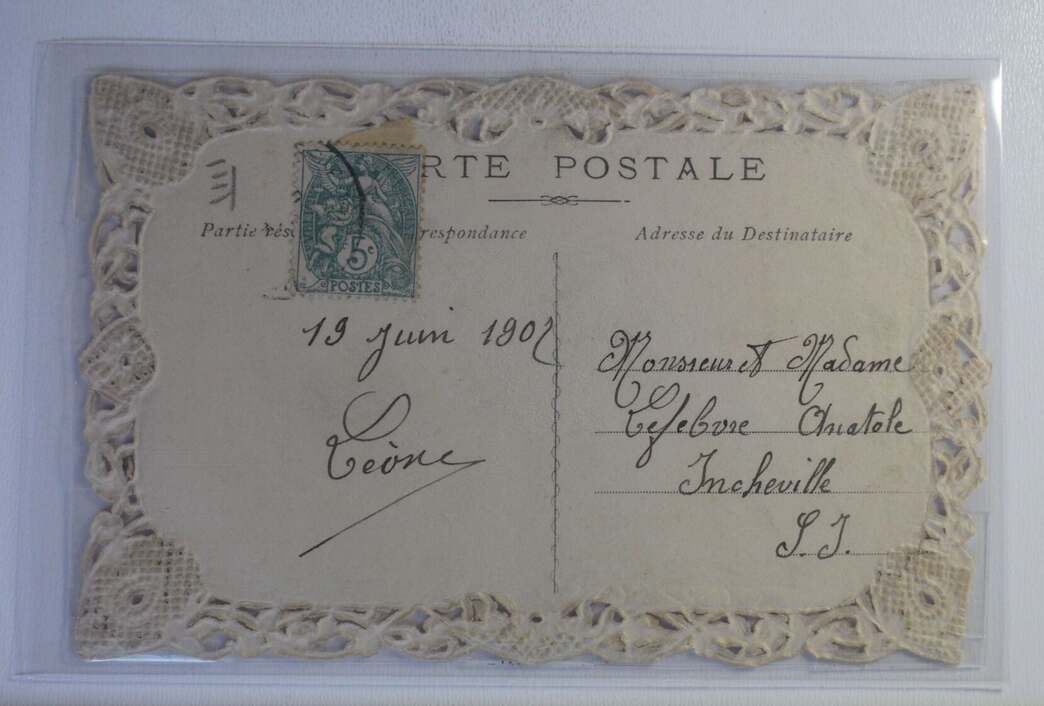 RTE POSTALE
Partie rés respondance
Adresse du Destinataire
5c
POSTES
19 Juin 190
Léone
Monsieur et Madame
Lefebvre Anatole
Incheville
S. I.